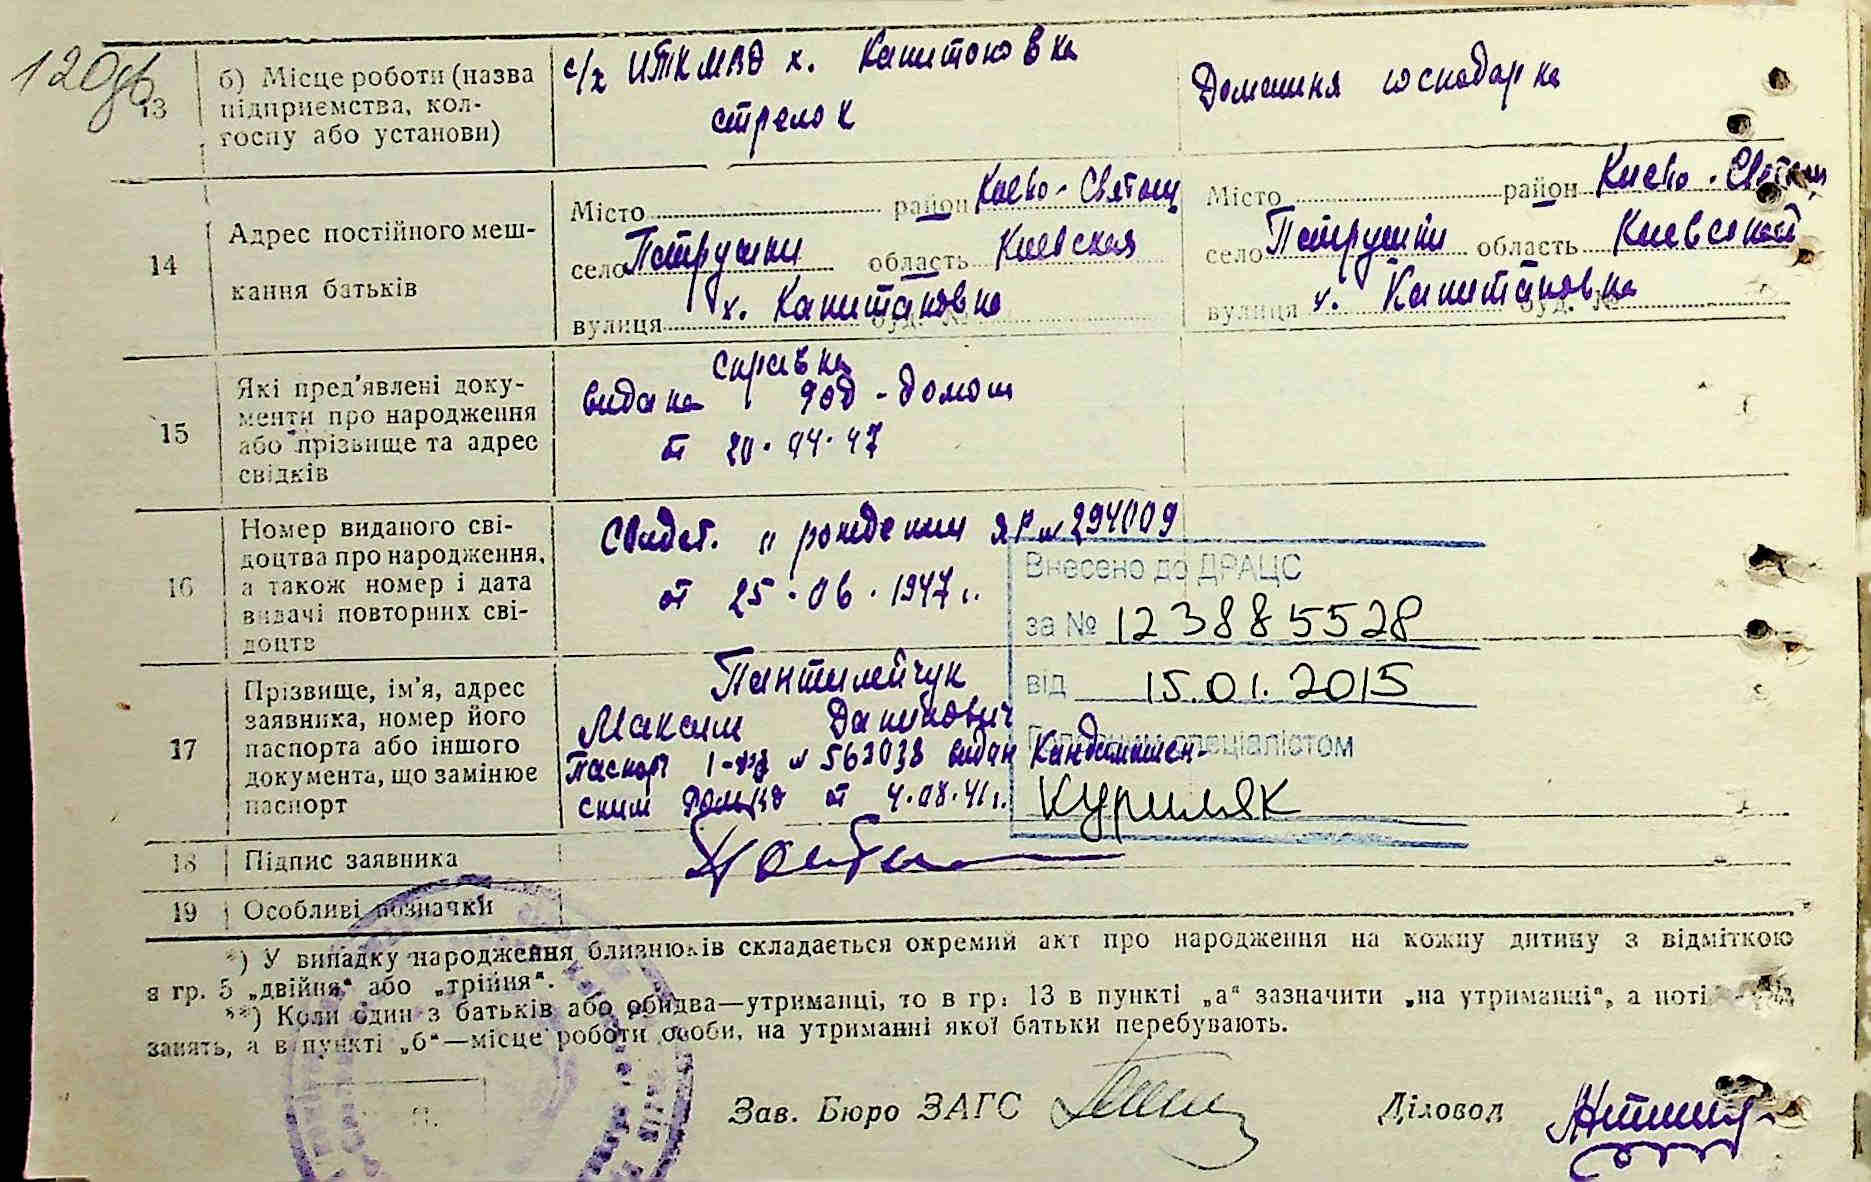 120об
13
б) Місце роботи (назва
підприємства, кол-
госпу або установи)
с/х ИТК МВД х. Капитоновка
стрелок
Домашня господарка
14
Адрес постійного меш-
кання батьків
Місто район Киево-Святош
село Петрушки область Киевская
вулиця х. Капитановка буд. №
Місто район Киево-Святош
село Петрушки область Киевской
вулиця х. Капитановка буд. №
15
Які пред'явлені доку-
менти про народження
або прізвище та адрес
свідків
справка
видана род-домом
от 20.04.47
16
Номер виданого сві-
доцтва про народження,
а також номер і дата
видачі повторних сві-
доцтв
Свидет. о рождении ЯР № 294009
от 25.06.1947 г.
Внесено до ДРАЦС
за № 123885528
від 15.01.2015
Головним спеціалістом
Куриляк
17
Прізвище, ім'я, адрес
заявника, номер його
паспорта або іншого
документа, що замінює
паспорт
Пантилейчук
Максим Данилович
Паспорт № 563038 видан
ским от 4.08.41 г.
18
Підпис заявника
19
Особливі позначки
*) У випадку народження близнюків складається окремий акт про народження на кожну дитину з відміткою
в гр. 5 „двійня“ або „трійня“.
**) Коли один з батьків або обидва—утриманці, то в гр. 13 в пункті „а“ зазначити „на утриманні“, а поті
занять, а в пункті „б“—місце роботи особи, на утриманні якої батьки перебувають.
Зав. Бюро ЗАГС
Діловод